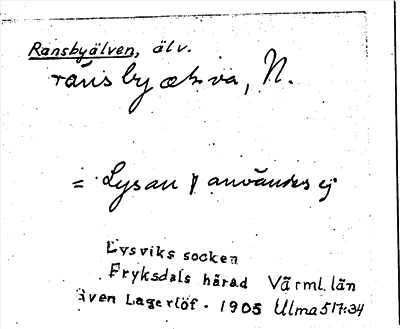 Ransbyälven, älv.
ränsbyälva, N.
= Lysan användes ej
Lysviks socken
Fryksdals härad Värml. län
Even Lagerlöf. 1905 Ulma 517:34